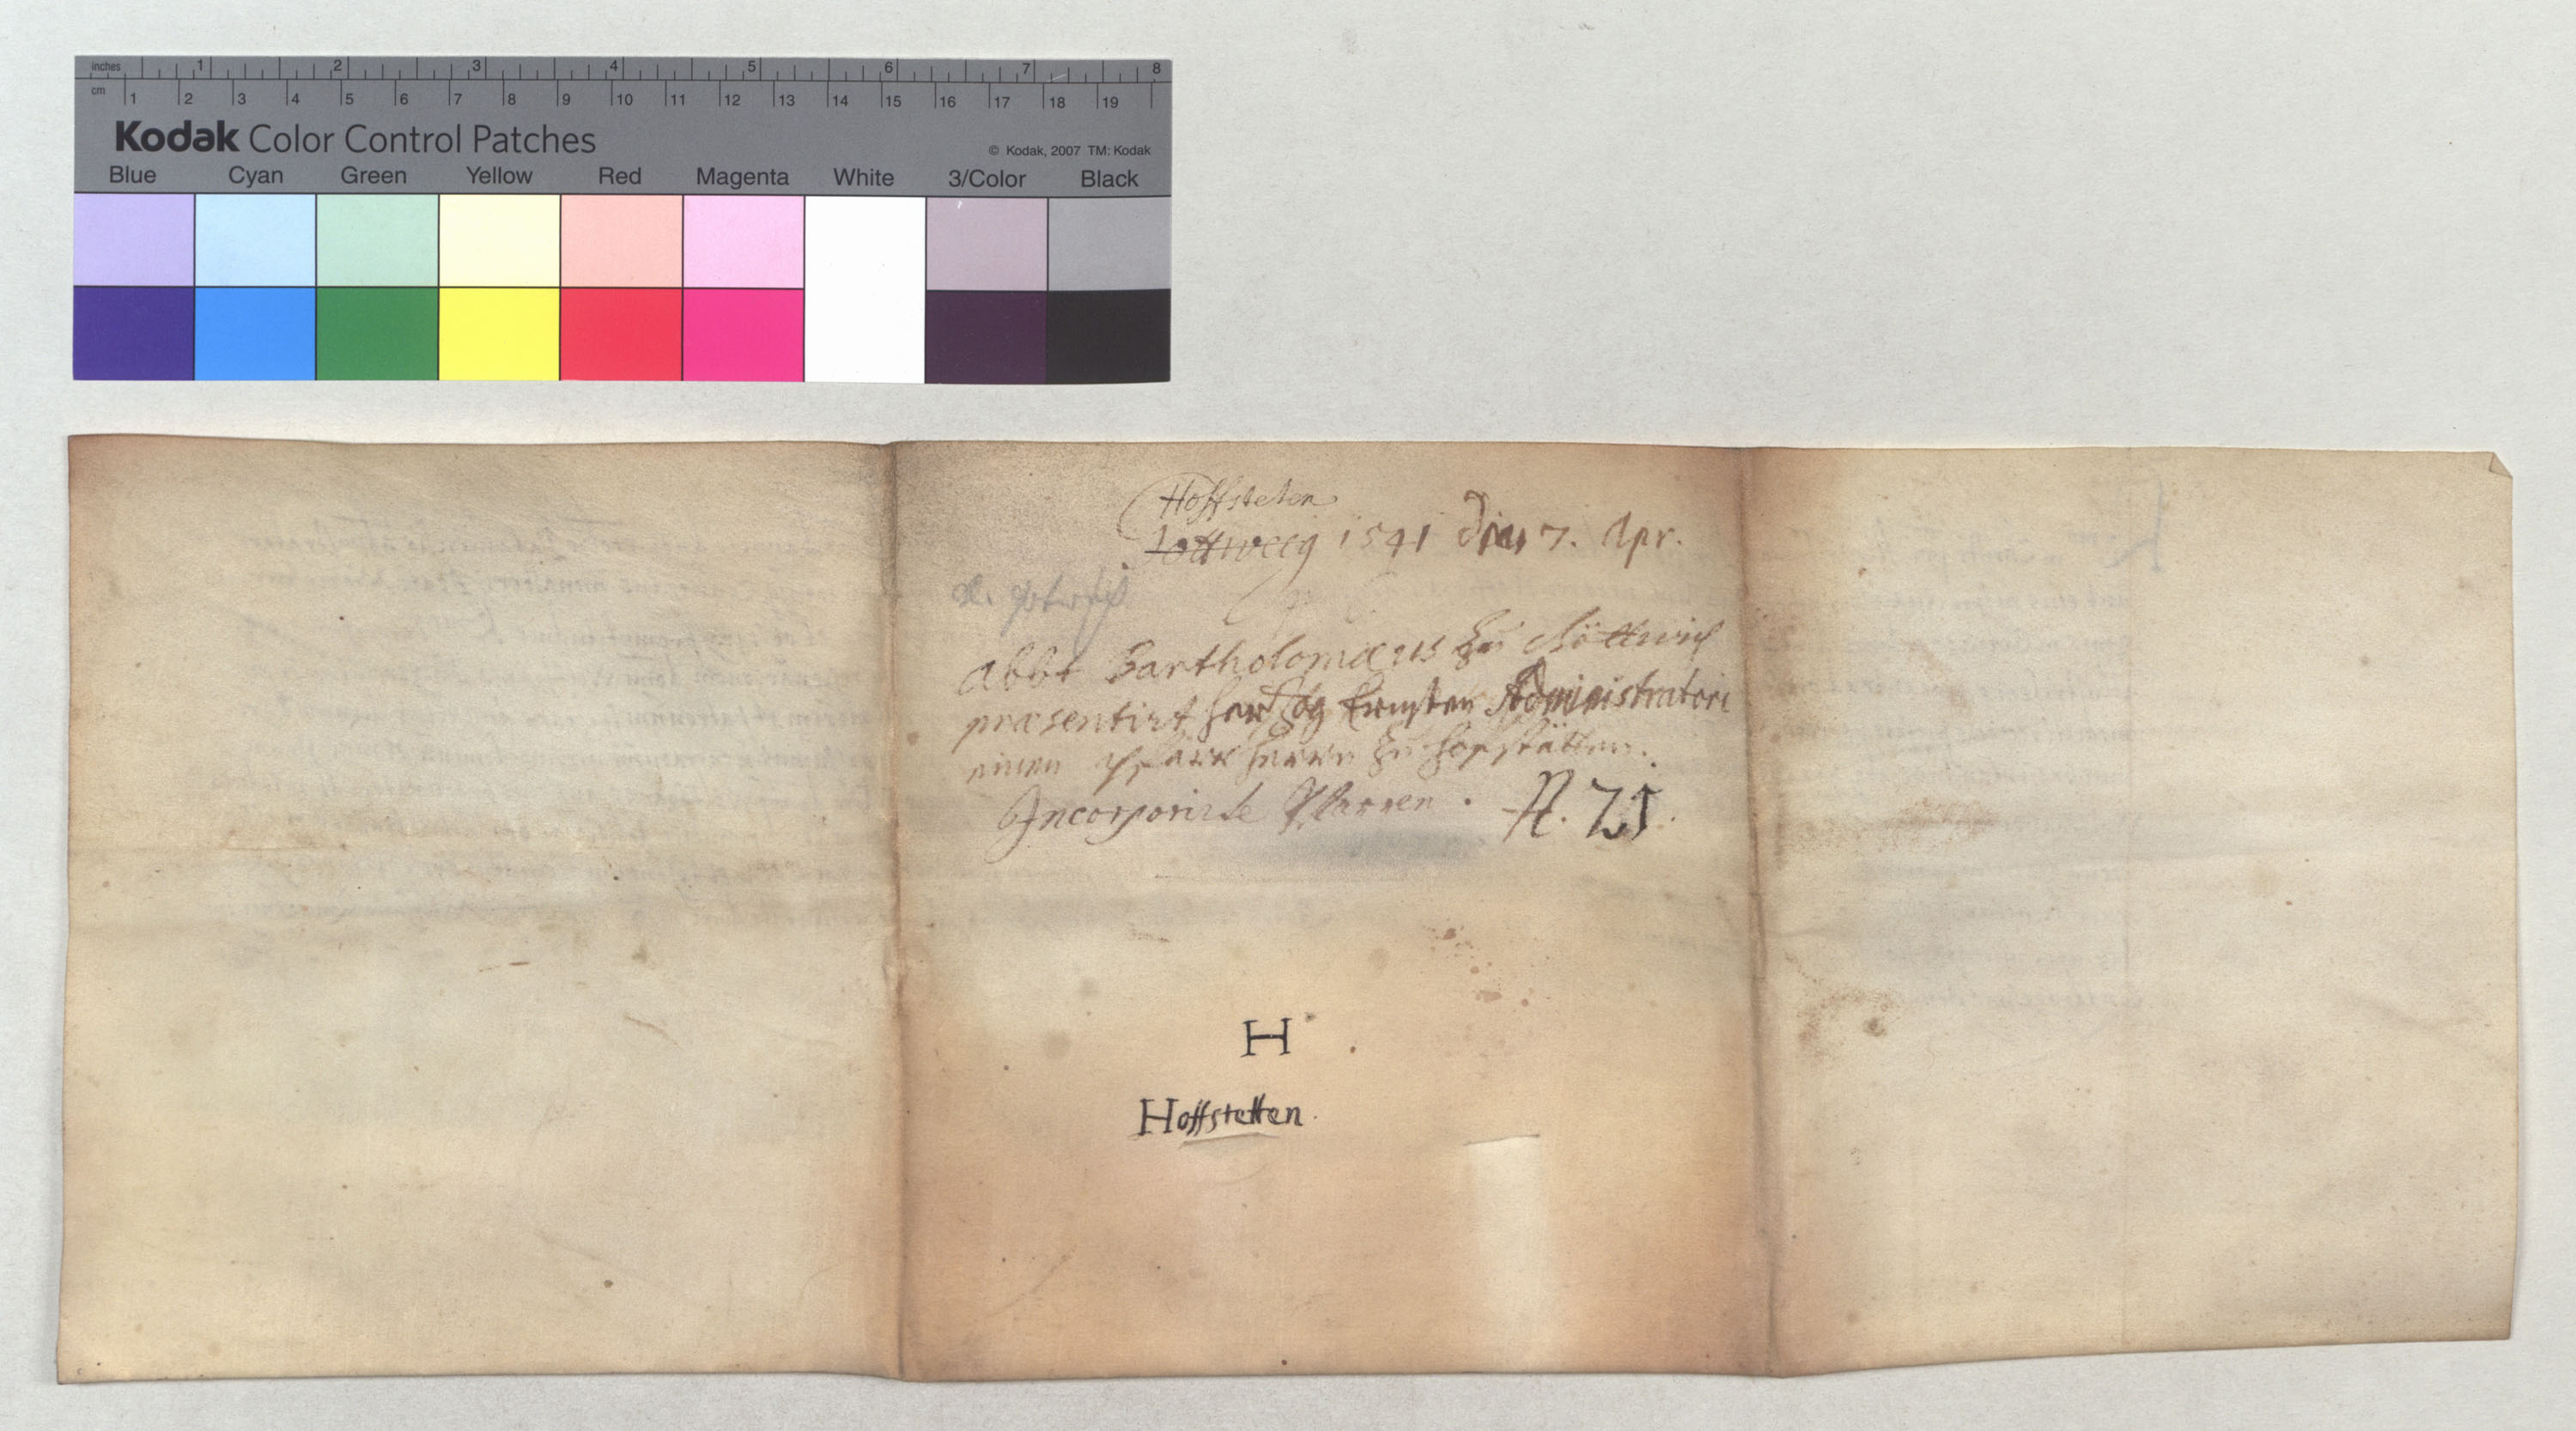 inches 1 2 3 4 5 6 7 8
cm 1 2 3 4 5 6 7 8 9 10 11 12 13 14 15 16 17 18 19
Kodak Color Control Patches
© Kodak, 2007 TM: Kodak
Blue Cyan Green Yellow Red Magenta White 3/Color Black
Hoffsteten
1541 7. Apr.
Abbt Bartholomæus zu Göttweich
præsentirt Hertzog Ernsten Administratori
einen Pfarrherrn zu Hofstätten.
Incorporirte Pfarren. N. 25.
H
Hoffstetten.